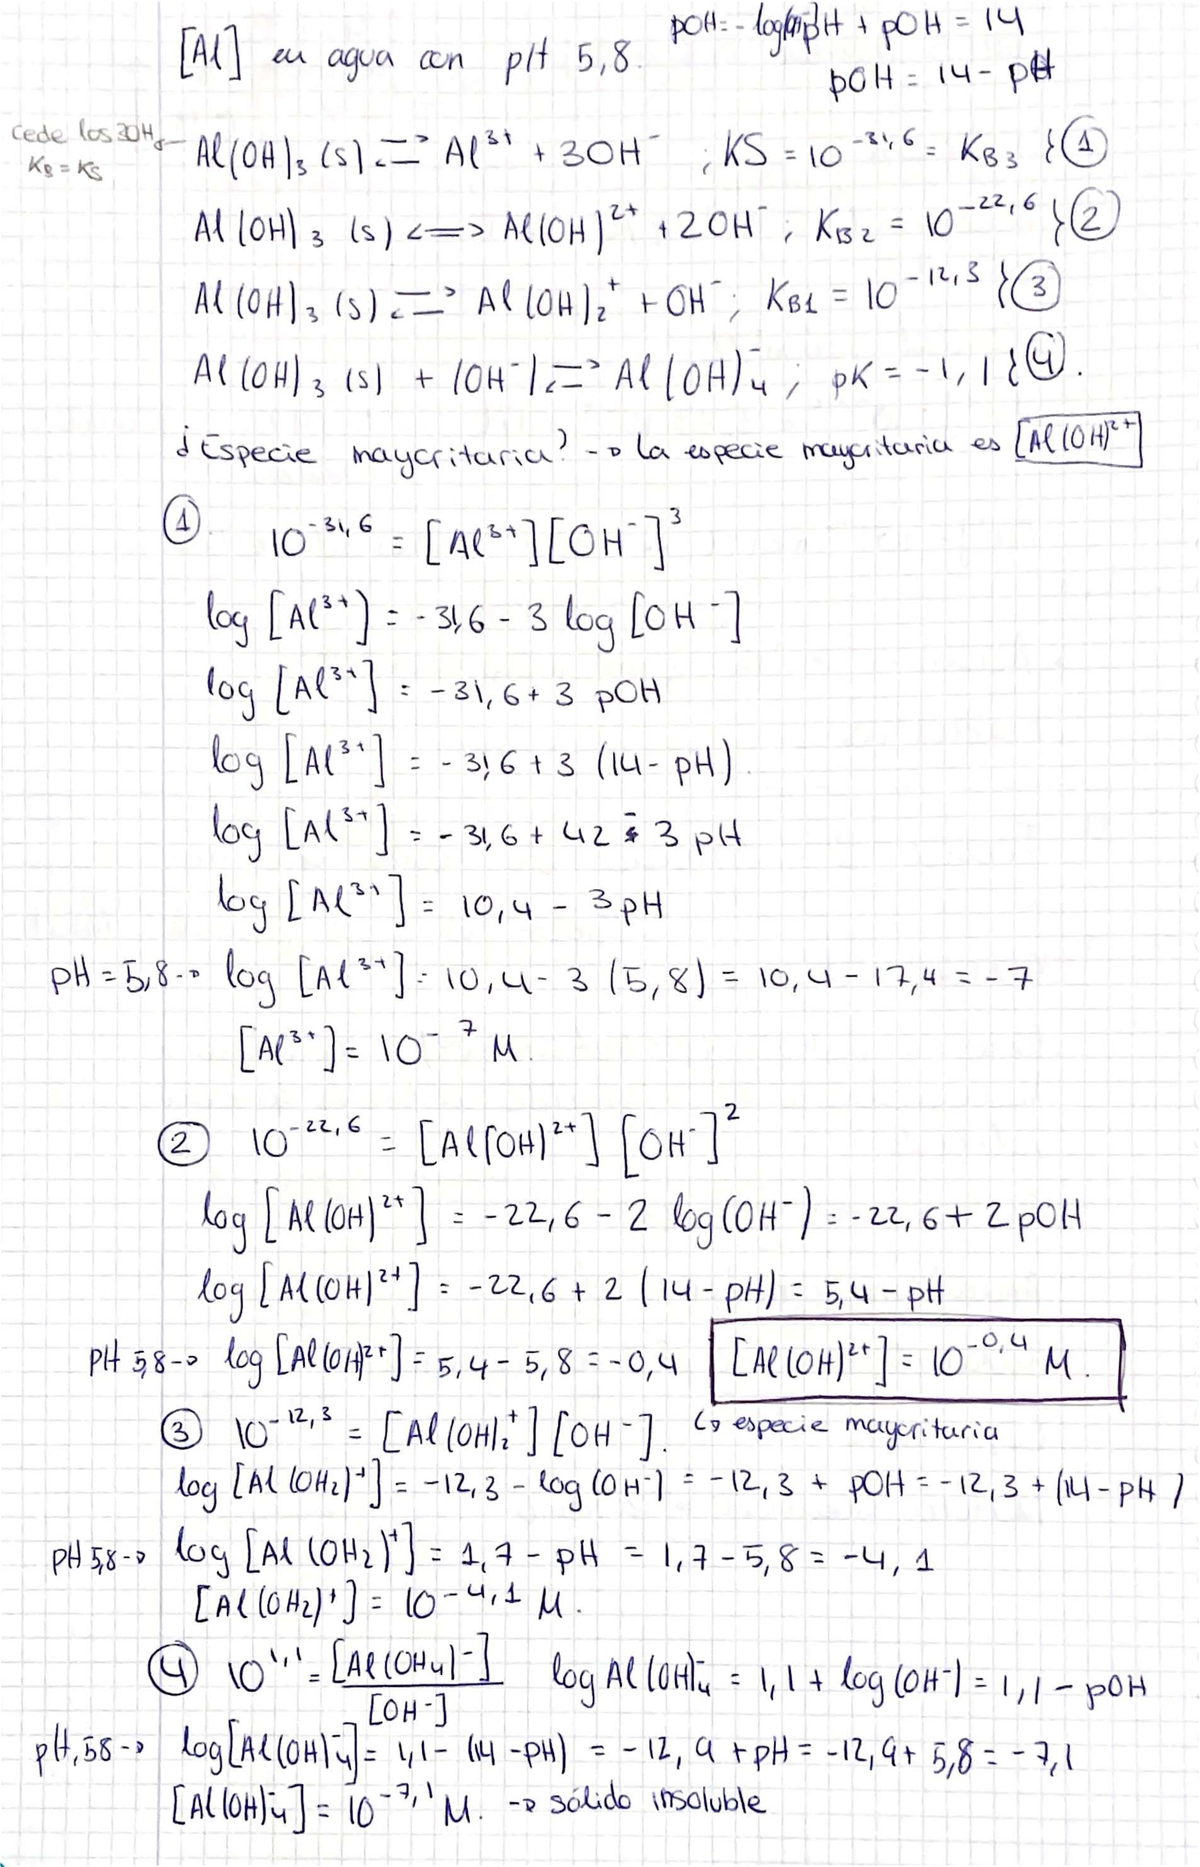 [Al] en agua con pH 5,8.
pH + pOH = 14
pOH = 14 - pH
cede los 3OH
KB = KS
Al(OH)3 (s) ⇌ Al3+ + 3OH- ; KS = 10^-31,6 = KB3 } ①
Al(OH)3 (s) <=> Al(OH)2+ + 2OH- ; KB2 = 10^-22,6 } ②
Al(OH)3 (s) ⇌ Al(OH)2+ + OH- ; KB1 = 10^-12,3 } ③
Al(OH)3 (s) + (OH-) ⇌ Al(OH)4- ; pK = -1,1 } ④.
¿Especie mayoritaria? -> La especie mayoritaria es [Al(OH)2+]
① 10^-31,6 = [Al3+][OH-]^3
log [Al3+] = -31,6 - 3 log [OH-]
log [Al3+] = -31,6 + 3 pOH
log [Al3+] = -31,6 + 3 (14 - pH)
log [Al3+] = -31,6 + 42 - 3 pH
log [Al3+] = 10,4 - 3pH
pH = 5,8 -> log [Al3+] = 10,4 - 3 (5,8) = 10,4 - 17,4 = -7
[Al3+] = 10^-7 M.
② 10^-22,6 = [Al(OH)2+] [OH-]^2
log [Al(OH)2+] = -22,6 - 2 log(OH-) = -22,6 + 2 pOH
log [Al(OH)2+] = -22,6 + 2 (14 - pH) = 5,4 - pH
pH 5,8 -> log [Al(OH)2+] = 5,4 - 5,8 = -0,4 [Al(OH)2+] = 10^-0,4 M.
③ 10^-12,3 = [Al(OH)2+][OH-]. ↳ especie mayoritaria
log [Al(OH2)+] = -12,3 - log(OH-) = -12,3 + pOH = -12,3 + (14 - pH)
pH 5,8 -> log [Al(OH2)+] = 1,7 - pH = 1,7 - 5,8 = -4,1
[Al(OH2)+] = 10^-4,1 M.
④ 10^1,1 = [Al(OH4)-] / [OH-] log Al(OH)4- = 1,1 + log(OH-) = 1,1 - pOH
pH,58 -> log[Al(OH)4-] = 1,1 - (14 - pH) = -12,9 + pH = -12,9 + 5,8 = -7,1
[Al(OH)4-] = 10^-7,1 M. -> sólido insoluble